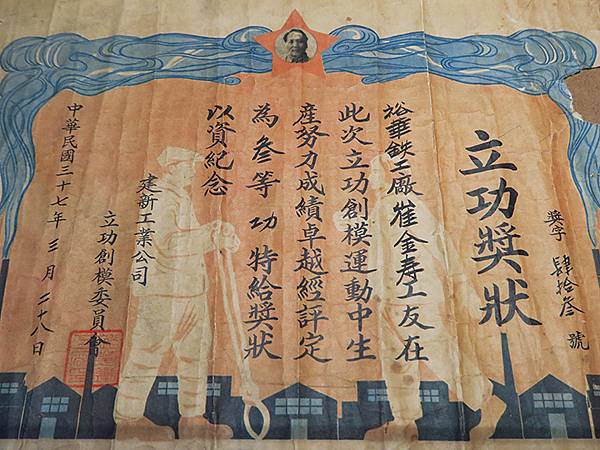 立功獎狀
獎字 肆拾叁 號
裕華鉄工廠崔金寿工友在
此次立功創模運動中生
產努力成績卓越經評定
為叁等功特給獎狀
以資紀念
建新工業公司
立功創模委員會
中華民國三十七年 三月 二十八日